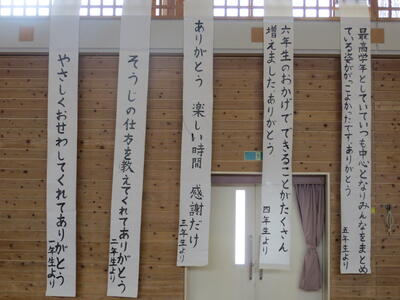 最高学年としていていつも中心となりみんなをまとめ
ている姿ががっこよかったです。ありがとう
五年生より
六年生のおかげでできることがたくさん
増えました。ありがとう
四年生より
ありがとう 楽しい時間 感謝だけ
三年生より
そうじの仕方を教えてくれてありがとう
二年生より
やさしくおせわしてくれてありがとう
一年生より